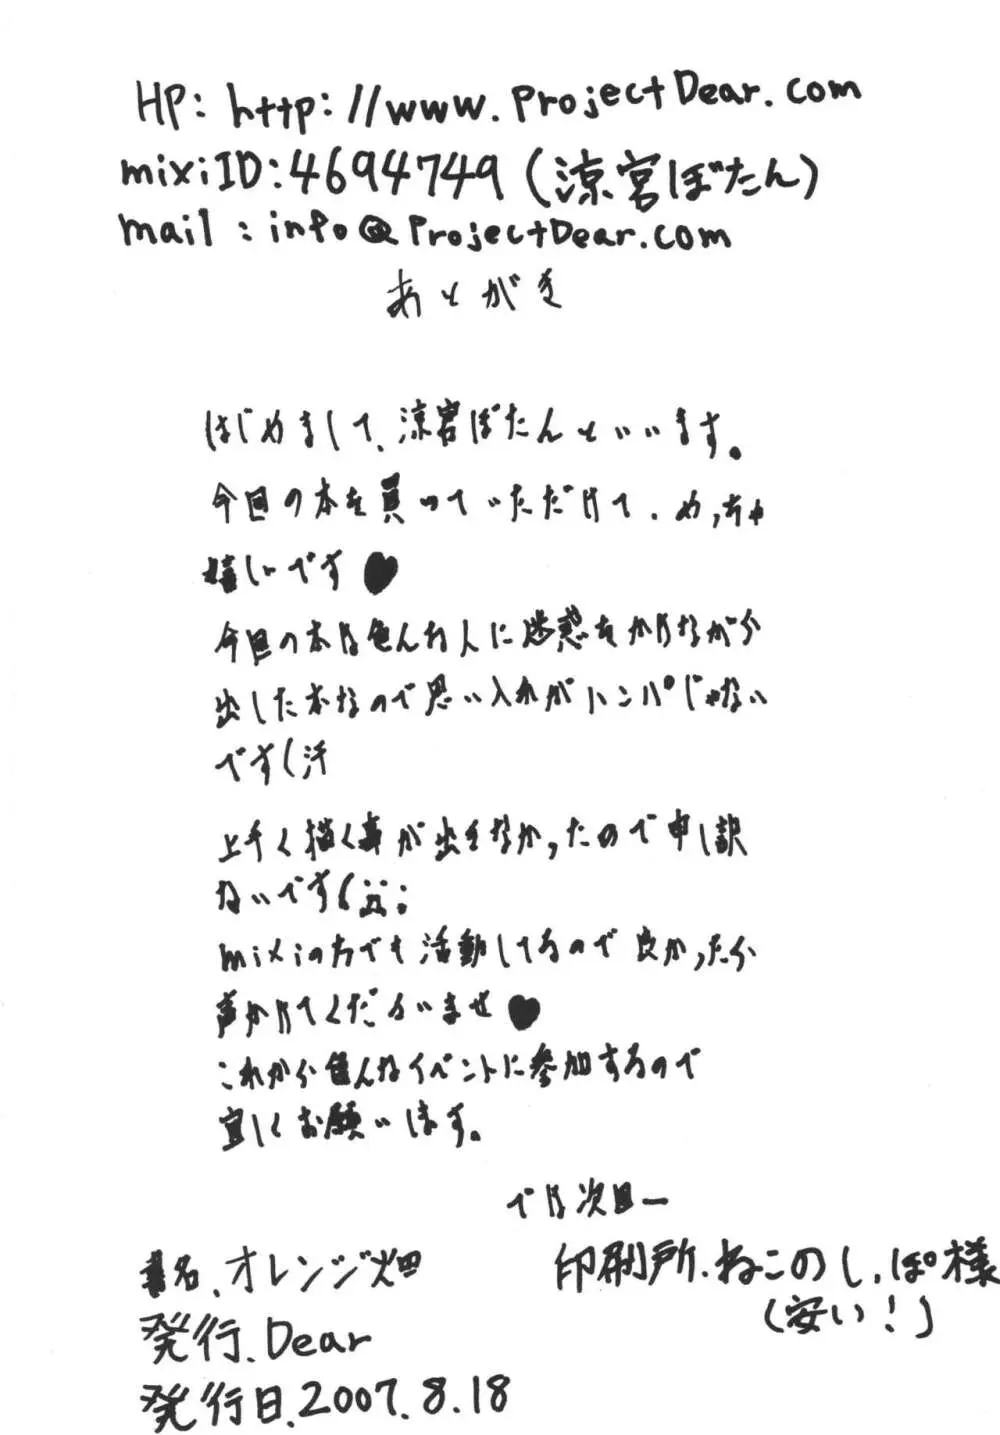 HP: http://www.ProjectDear.com
mixiID:4694749(涼宮ぼたん)
mail:info@ProjectDear.com
あとがき
はじめまして、涼宮ぼたんといいます。
今回の本を買っていただけて、めっちゃ
嬉しいです♥
今回の本は色んな人に迷惑をかけながら
出した本なので思い入れがハンパじゃない
です(汗
上手く描く事が出きなかったので申し訳
ないです(
mixiの方でも活動してるので良かったら
声かけてくださいませ♥
これから色んなイベントに参加するので
宜しくお願いします。
では次回ー
書名.オレンジ畑
印刷所.ねこのしっぽ様
(安い!)
発行.Dear
発行日.2007.8.18